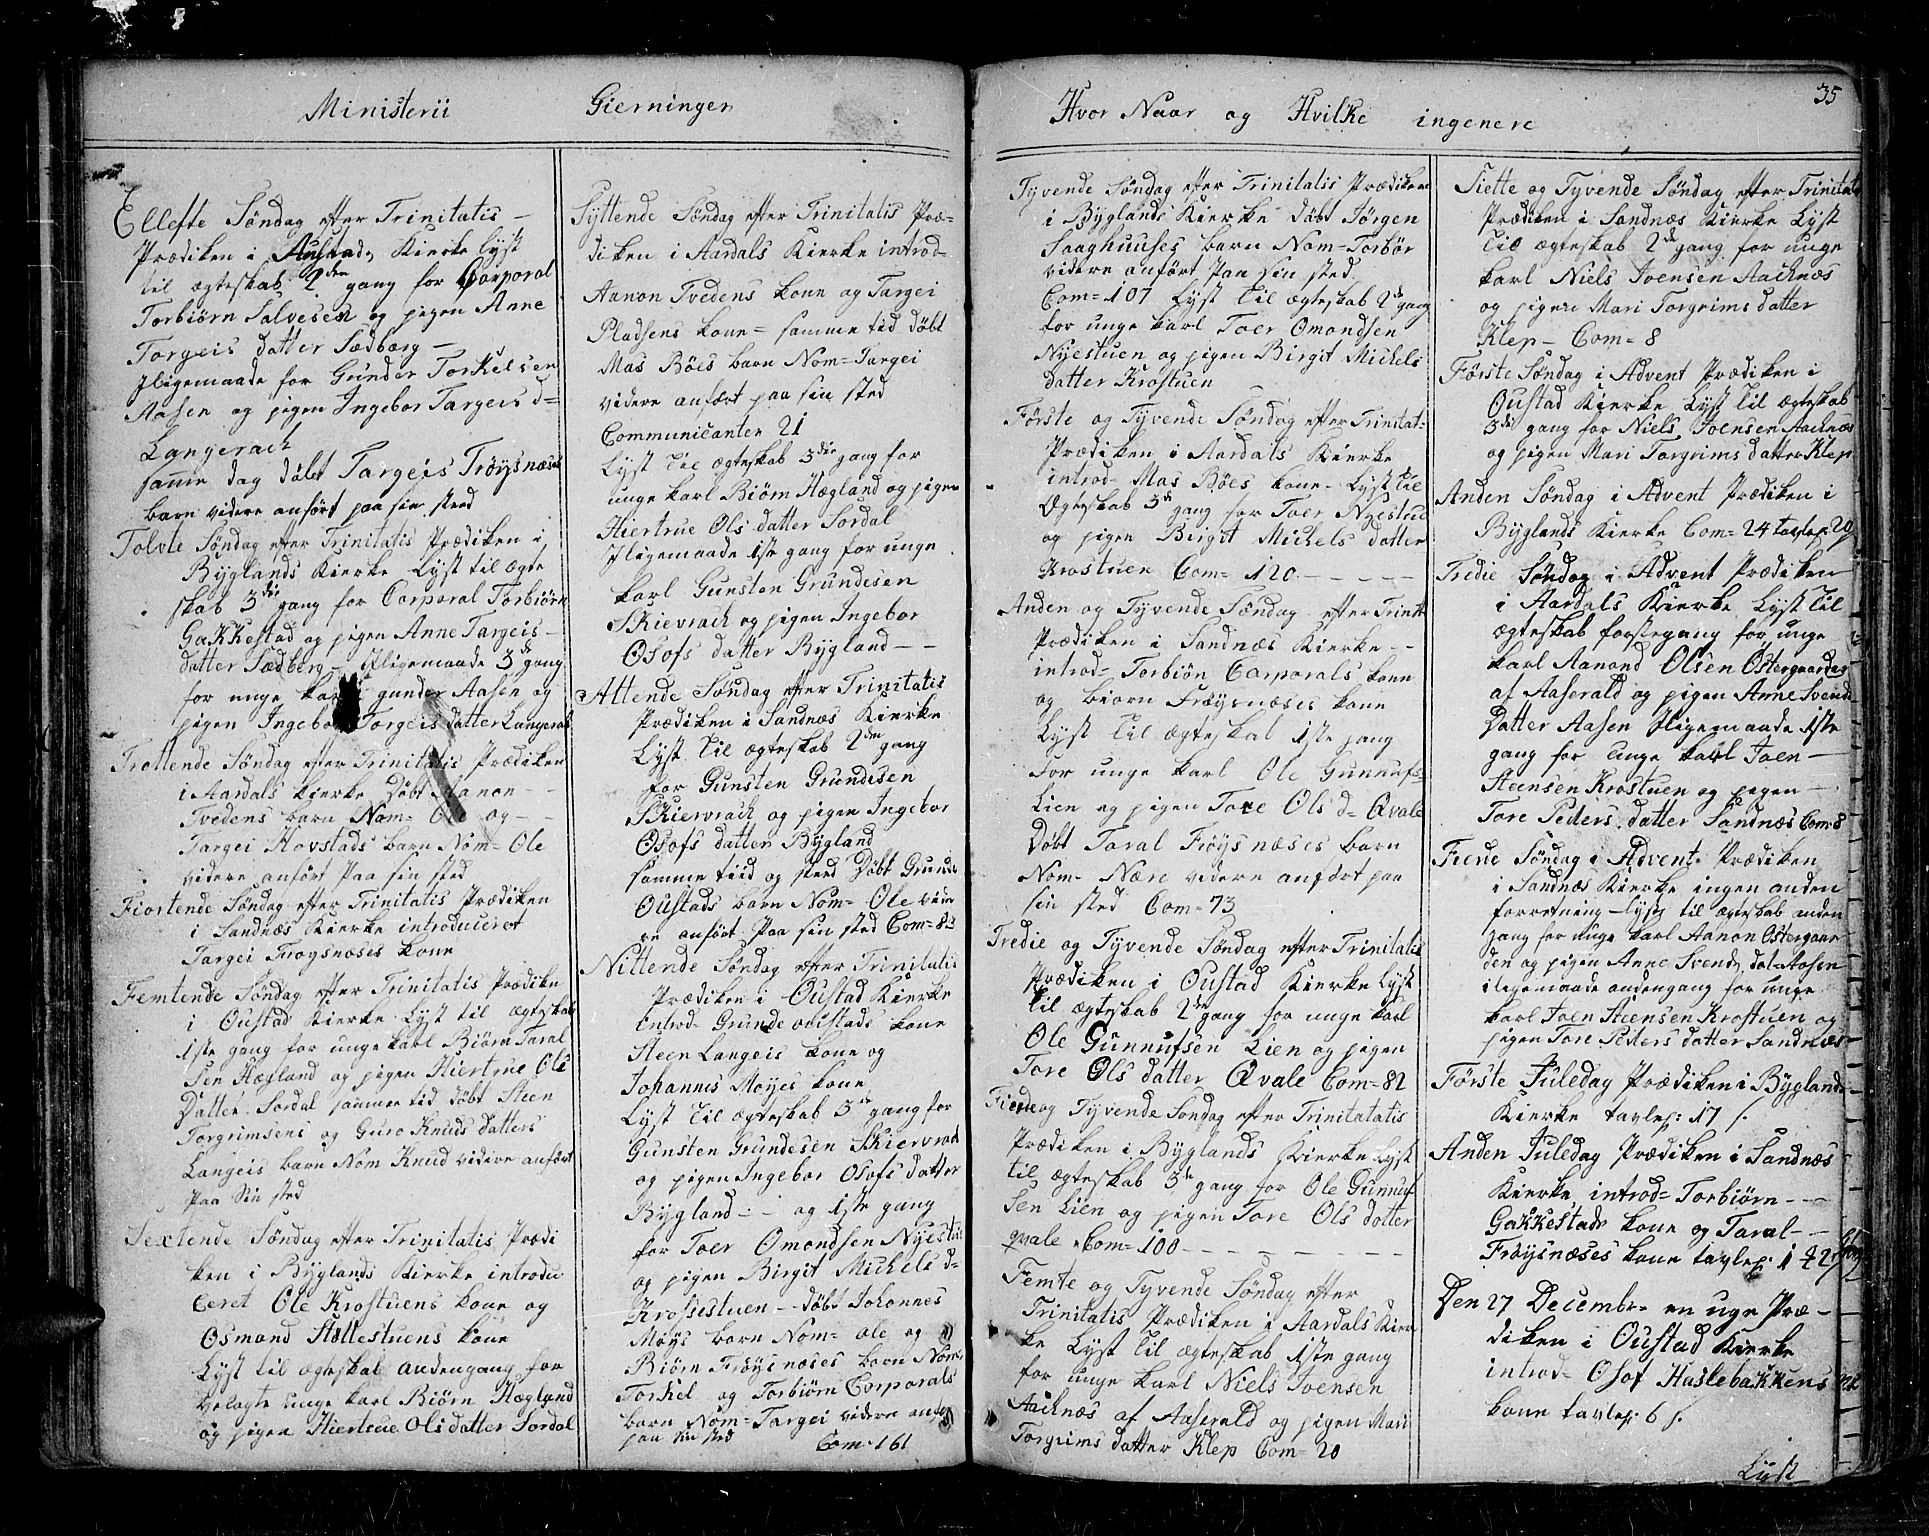 Ministerii Gierninger
Ellefte Søndag efter Trinitatis –
Prædiken i Kierke lyst
til ægteskab 2den gang for Corporal
Torbiørn Salvesen og pigen Anne
Torgeis datter Sædberg –
Iligemaade for Gunder Torkelsen
Aasen og pigen Ingebor Targeis d=
Langerach
samme dag døbt Targeis Frøysnæses
barn videre anført paa sin sted
Tolvte Søndag efter Trinitatis Prædiken i
Byglands Kierke Lyst til ægte
skab 3die gang for Corporal Torbiørn
Gakkestad og pigen Anne Targeis –
datter Sædberg – Iligemaade 3de gang
for unge karl gunder Aasen og
pigen Ingebor Torgeis datter Langerak
Trettende Søndag efter Trinitatis Prædiken
i Aardals Kierke Døbt Aanon –
Tvedens barn Nom= Ole og –
Targei Hovstads barn Nom= Ole
videre anført Paa sin sted
Fiortende Søndag efter Trinitatis Prædiken
i Sandnæs Kierke introduceret
Targei Frøysnæses kone
Femtende Søndag efter Trinitatis Prædiken
i Oustad Kierke Lyst til ægteskab
1ste gang for unge karl Biørn Taral
Sen Hægland og pigen Hiertrue Ols
Datter Sordal samme tid døbt Steen
Torgrimsens og Guro Knuds datters
Langeis barn Nom Knud videre anført
Paa sin sted
Sextende Søndag efter Trinitatis Prædi
ken i Byglands Kierke introdu
ceret Ole Krostuens kone og
Osmond Stallestuens kone
Lyst til ægteskab andengang for
velagte unge karl Biørn Hægland
og pigen Hiertrue Ols datter Sordal
Syttende Søndag efter Trinitatis Præ=
diken i Aardals Kierke introd=
Aanon Tvedens kone og Targei
Pladsens kone= samme tid døbt
Mas Bøes barn Nom= Targei
videre anført paa sin sted
Communicanter 21
Lyst til ægteskab 3die gang for
unge karl Biørn Hægland og pigen
Hiertrue Ols datter Sordal
Iligemaade 1ste gang for unge
karl Gunsten Grundesen
Skievrach og pigen Ingebor
Osofs datter Bygland – –
Attende Søndag efter Trinitatis
Prædiken i Sandnæs Kierke
Lyst til ægteskab 2den gang
for Gunsten Grundesen
Skievrach og pigen Ingebor
Osofs datter Bygland
samme tiid og sted Døbt Grunde
Oustads barn Nom= Ole vide
re anført Paa sin sted Com= 83
Nittende Søndag efter Trinitatis
Prædiken i Oustad Kierke
introd= Grunde oustads kone
Steen Langeis kone og
Johannes Moyes kone
Lyst til ægteskab 3de gang for
Gunsten Grundesen Skievrach
og pigen Ingebor Osofs datter
Bygland – og 1ste gang
for Toer Omondsen Nyestue
og pigen Birgit Michels d=
Krossestuen – døbt Johannes
Moys barn Nom= ole og
Biørn Frøysnæses barn Nom=
Torkel og Torbiørn Corporals
barn Nom= Targei videre anført
paa sin sted Com= 161
Hvor Naar og Hvilke ingenere
35
Tyvende Søndag efter Trinitatis Prædiken
i Byglands Kierke døbt Jørgen
Saaghuuses barn Nom= Torbør
videre anført paa sin sted
Com= 107 Lyst til ægteskab 2de gang
for unge karl Toer Omondsen
Nyestuen og pigen Birgit Michels
datter Krostuen
Første og Tyvende Søndag efter Trinitat=
Prædiken i Aardals Kierke
introd= Mas Bøes kone – Lyst til
Ægteskab 3de gang for Toer Nyestue
og pigen Birgit Michels datter
Krostuen Com= 120 – – – –
Anden og Tyvende Søndag efter Trinit=
Prædiken i Sandnæs Kierke – –
introd= Torbiøn Corporals kone
og biørn Frøysnæses kone
Lyst til ægteskab 1ste gang
For unge karl Ole Gunnufs=
Lien og pigen Tore Ols d= Qvale
Døbt Taral Frøysnæses barn
Nom= Nære videre anført paa
sin sted Com= 73
Tredie og Tyvende Søndag efter Trinitatis
Prædiken i Oustad Kierke Lyst
til ægteskab 2den gang for unge karl
Ole Gunnufsen Lien og pigen
Tore Ols datter Qvale Com= 82
Fierde og Tyvende Søndag efter Trinitatatis
Prædiken i Byglands Kierke Lyst
til ægteskab 3de gang for Ole Gunnuf
Sen Lien og pigen Tore Ols datter
qvale Com= 100 – – – – – –
Femte og Tyvende Søndag efter
Trinitatis Prædiken i Aardals Kier
ke Lyst til ægteskab 1ste gang
for unge karl Niels Joensen
Aacknæs af Aaserald og pigen Mari
Torgrims datter Klep Com= 20
Siette og Tyvende Søndag efter Trinitatis
Prædiken i Sandnæs Kierke Lyst
til ægteskab 2de gang for unge
karl Niels Joensen Aacknæs
og pigen Mari Torgrims datter
Klep – Com= 8
Første Søndag i Advent Prædiken i
Oustad Kierke Lyst til ægteskab
3die gang for Niels Joensen Aacknæs
og pigen Mari Torgrims datter Klep
Anden Søndag i Advent Prædiken i
Byglands Kierke Com= 24 tavlep: 29
Tredie Søndag i Advent Prædiken
i Aardals Kierke Lyst til
ægteskab førstegang for unge
karl Aanond Olsen Ostergaarden
af Aaserald og pigen Anne Svends
Datter Aasen Iligemaade 1ste
gang for unge karl Joen –
Steensen Krostuen og pigen –
Tore Peders datter Sandnæs Com= 8
Fierde Søndag i Advent Prædiken
i Sandnæs Kierke ingen anden
forretning – lyst til ægteskab anden
gang for unge karl Aanon Ostergaar
den og pigen Anne Svends dat= Aasen
iligemaade andengang for unge
karl Joen Steensen Krostuen og
pigen Tore Peders datter Sandnæs
Første Juledag Prædiken i Byglands
Kierke tavlep: 17 s.
Anden Juledag Prædiken i Sandnæs
Kierke introd= Torbiørn – –
Gakkestads kone og Taral – –
Frøysnæses kone tavlep: 1 42
Den 27 Decembr= en uge Præ –
diken i Oustad Kierke
introd= Osof Haslebakkens
kone tavlep: 6 s.
Lyst